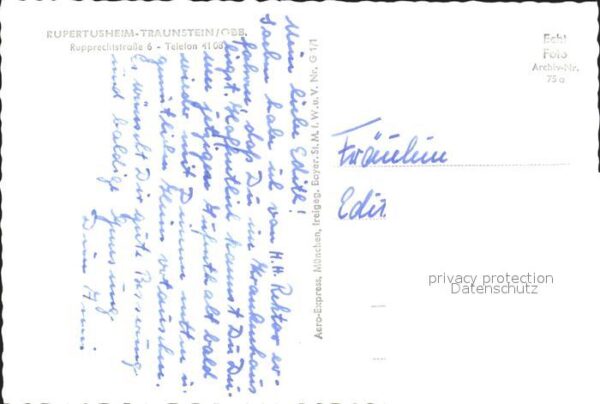 RUPERTUSHEIM-TRAUNSTEIN/OBB.
Rupprechtstraße 6 - Telefon 4108
Echt
Foto
Archiv-Nr.
75 a
Mein liebe Edith!
Soeben habe ich von H.H. Rektor er-
fahren, daß Du im Krankenhaus
liegst. Hoffentlich kannst Du Dei-
nen jetzigen Aufenthalt bald
wieder mit Deinem netten u.
gemütlichen Heim vertauschen.
Es wünscht Dir gute Besserung
und baldige Genesung
Deine
Aero-Express, München, freigeg. Bayer. St. M. f. W. u. V. Nr. G 1/1
Fräulein
Edit
privacy protection
Datenschutz